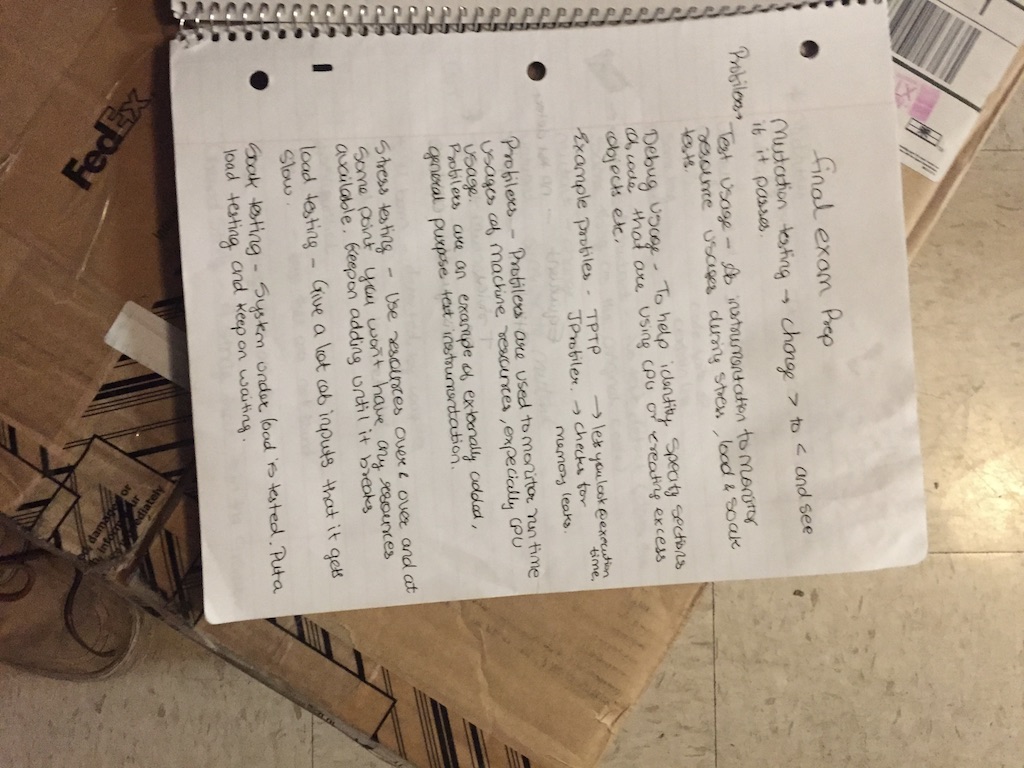 final exam Prep
Mutation testing → change > to < and see
if it passes.
Profilers
Test usage - As instrumentation to monitor
resource usages during stress, load & soak
tests.
Debug usage - To help identify specify sections
of code that are using CPU or creating excess
objects etc.
Example profiles - TPTP → lets you look @ execution
time,
JProfiler. → checks for
memory leaks.
Profilers - Profilers are used to monitor run time
usages of machine resources, expecially CPU
usage.
Profilers are an example of externally added,
general purpose test instrumentation.
Stress testing - Use resources over & over and at
some point you won't have any resources
available. Keep on adding until it breaks
load testing - Give a lot of inputs that it gets
slow.
Soak testing - System under load is tested. Put a
load testing and keep on waiting.
FedEx